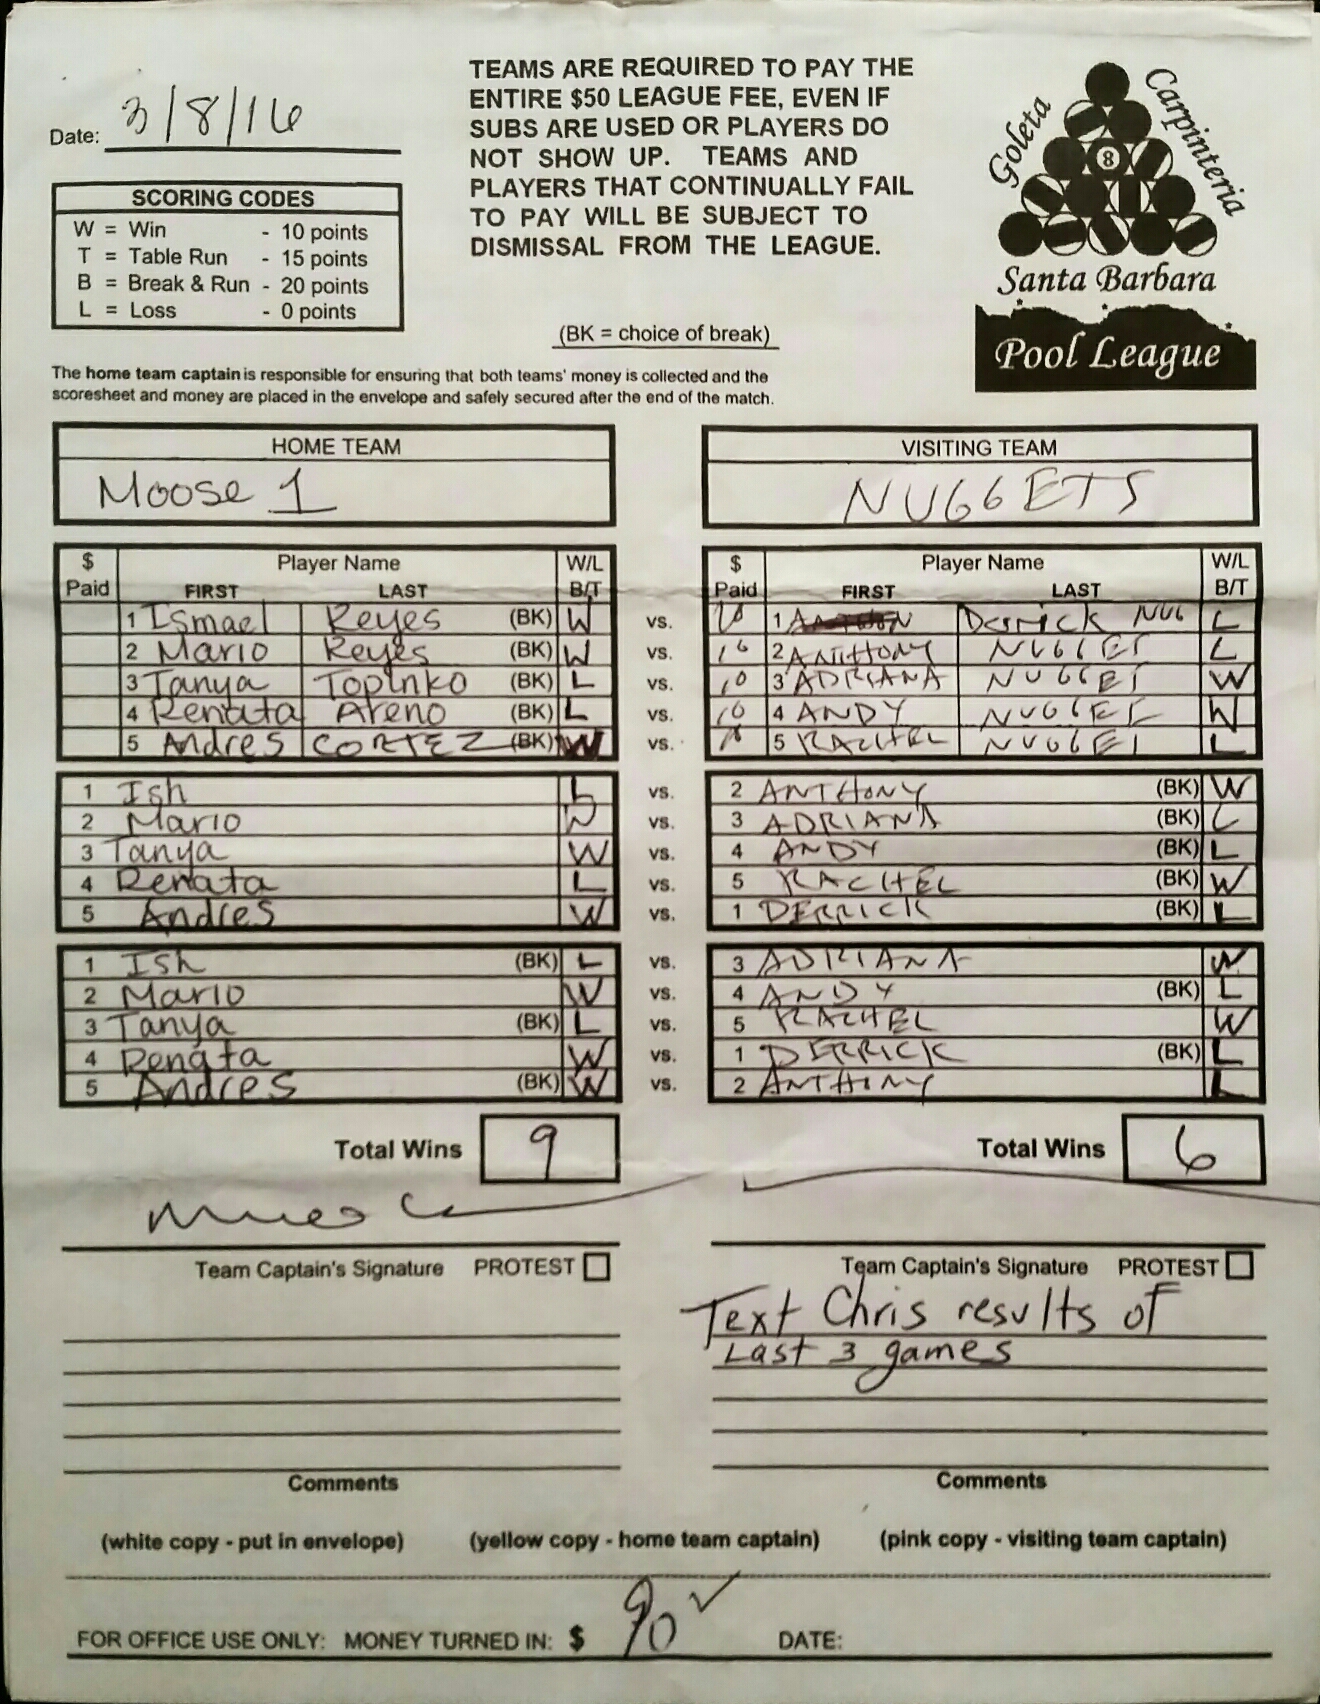 Date: 3/8/16
TEAMS ARE REQUIRED TO PAY THE
ENTIRE $50 LEAGUE FEE, EVEN IF
SUBS ARE USED OR PLAYERS DO
NOT SHOW UP. TEAMS AND
PLAYERS THAT CONTINUALLY FAIL
TO PAY WILL BE SUBJECT TO
DISMISSAL FROM THE LEAGUE.
Goleta
Carpinteria
8
Santa Barbara
Pool League
SCORING CODES
W = Win - 10 points
T = Table Run - 15 points
B = Break & Run - 20 points
L = Loss - 0 points
(BK = choice of break)
The home team captain is responsible for ensuring that both teams' money is collected and the
scoresheet and money are placed in the envelope and safely secured after the end of the match.
HOME TEAM
Moose 1
VISITING TEAM
NUGGETS
$ Player Name W/L
Paid FIRST LAST B/T
$ Player Name W/L
Paid FIRST LAST B/T
1 Ismael Reyes (BK) W vs. 1 Derrick NUG L
2 Mario Reyes (BK) W vs. 10 2 ANTHONY NUGGET L
3 Tanya Topinko (BK) L vs. 10 3 ADRIANA NUGGET W
4 Renata Areno (BK) L vs. 10 4 ANDY NUGGET W
5 Andres CORTEZ (BK) W vs. 5 RACHEL NUGGET L
1 Ish L vs. 2 ANTHONY (BK) W
2 Mario W vs. 3 ADRIANA (BK) L
3 Tanya W vs. 4 ANDY (BK) L
4 Renata L vs. 5 RACHEL (BK) W
5 Andres W vs. 1 DERRICK (BK) L
1 Ish (BK) L vs. 3 ADRIANA W
2 Mario W vs. 4 ANDY (BK) L
3 Tanya (BK) L vs. 5 RACHEL W
4 Renata W vs. 1 DERRICK (BK) L
5 Andres (BK) W vs. 2 ANTHONY L
Total Wins 9
Total Wins 6
Team Captain's Signature PROTEST
Team Captain's Signature PROTEST
Text Chris results of
Last 3 games
Comments
Comments
(white copy - put in envelope) (yellow copy - home team captain) (pink copy - visiting team captain)
FOR OFFICE USE ONLY: MONEY TURNED IN: $ 90 DATE: